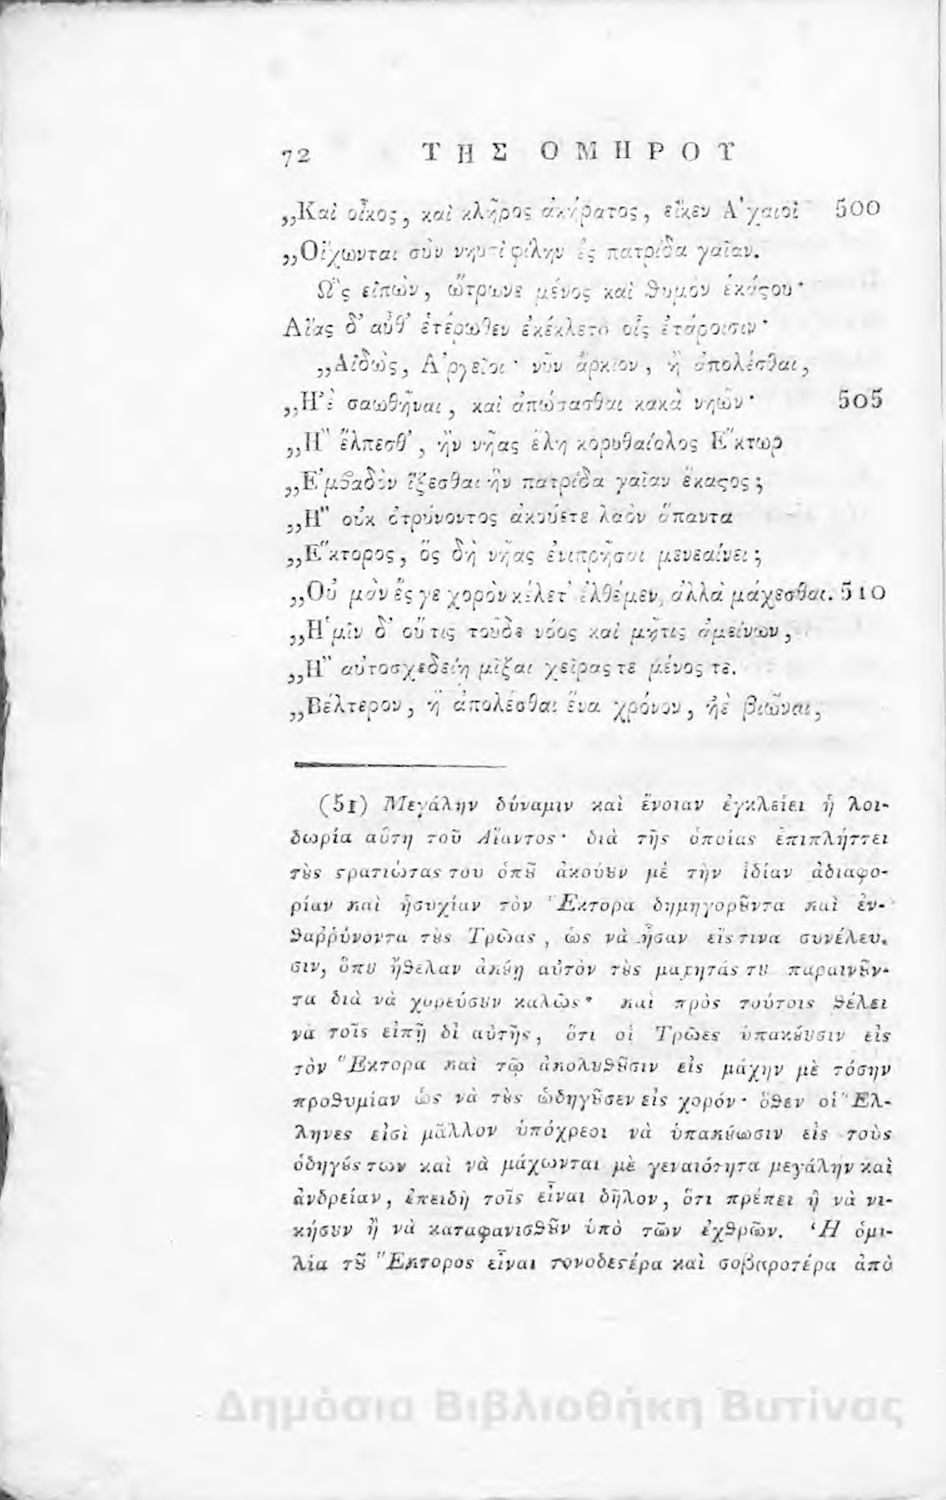 72 ΤΗΣ ΟΜΗΡΟΥ
„Καὶ οἶκος, καὶ κλῆρος ἀκήρατος, εἴκεν Ἀχαιοὶ 500
„Οἴχωνται σὺν νηυσὶ φίλην ἐς πατρίδα γαῖαν.
Ὣς εἰπὼν, ὤτρωνε μένος καὶ ϑυμὸν ἑκάϛου·
Αἴας δ’ αὖθ’ ἑτέρωθεν ἐκέκλετο οἷς ἑτάροισιν·
„Αἰδὼς, Ἀργεῖοι· νῦν ἄρκιον, ἢ ἀπολέσθαι,
„Ἠὲ σαωθῆναι, καὶ ἀπώσασθαι κακὰ νηῶν· 505
„Ἢ ἔλπεσθ’, ἢν νῆας ἕλῃ κορυθαίολος Ἕκτωρ
„Ἐμβαδὸν ἵξεσθαι ἣν πατρίδα γαῖαν ἕκαϛος;
„Ἢ οὐκ ὀτρύνοντος ἀκούετε λαὸν ἅπαντα
„Ἕκτορος, ὃς δὴ νῆας ἐνιπρῆσαι μενεαίνει;
„Οὐ μὰν ἔς γε χορὸν κέλετ’ ἐλθέμεν, ἀλλὰ μάχεσθαι. 510
„Ἡμῖν δ’ οὔτις τοῦδε νόος καὶ μῆτις ἀμείνων,
„Ἢ αὐτοσχεδείῃ μῖξαι χεῖρας τε μένος τε.
„Βέλτερον, ἢ ἀπολέσθαι ἕνα χρόνον, ἠὲ βιῶναι,
(51) Μεγάλην δύναμιν καὶ ἔνοιαν ἐγκλείει ἡ λοι-
δωρία αὕτη τοῦ Αἴαντος· διὰ τῆς ὁποίας ἐπιπλήττει
τȣ̀ς ϛρατιώτας του ὁπȣ͂ ἀκούȣν μὲ τὴν ἰδίαν ἀδιαφο-
ρίαν καὶ ἡσυχίαν τὸν Ἕκτορα δημηγορȣ͂ντα καὶ ἐν-
ϑαῤῥύνοντα τȣ̀ς Τρῶας, ὡς νὰ ἦσαν εἴς τινα συνέλευ-
σιν, ὅπȣ ἤϑελαν ἀκȣ́ῃ αὐτὸν τȣ̀ς μαχητάς τȣ παραινȣ͂ν-
τα διὰ νὰ χορεύσȣν καλῶς· καὶ πρὸς τούτοις ϑέλει
νὰ τοῖς εἰπῇ δὶ αὐτῆς, ὅτι οἱ Τρῶες ὑπακȣ́ȣσιν εἰς
τὸν Ἕκτορα καὶ τῷ ἀκολυϑȣ͂σιν εἰς μάχην μὲ τόσην
προϑυμίαν ὡς νὰ τȣ̀ς ὡδηγȣ͂σεν εἰς χορόν· ὅϑεν οἱ Ἕλ-
ληνες εἰσὶ μᾶλλον ὑπόχρεοι νὰ ὑπακȣ́ωσιν εἰς τοὺς
ὁδηγȣ́ς των καὶ νὰ μάχωνται μὲ γεναιότητα μεγάλην καὶ
ἀνδρείαν, ἐπειδὴ τοῖς εἶναι δῆλον, ὅτι πρέπει ἢ νὰ νι-
κήσȣν ἢ νὰ καταφανισϑȣ͂ν ὑπὸ τῶν ἐχϑρῶν. Ἡ ὁμι-
λία τȣ͂ Ἕκτορος εἶναι τονοδεϛέρα καὶ σοβαροτέρα ἀπὸ
Δημόσια Βιβλιοθήκη Βυτίνας